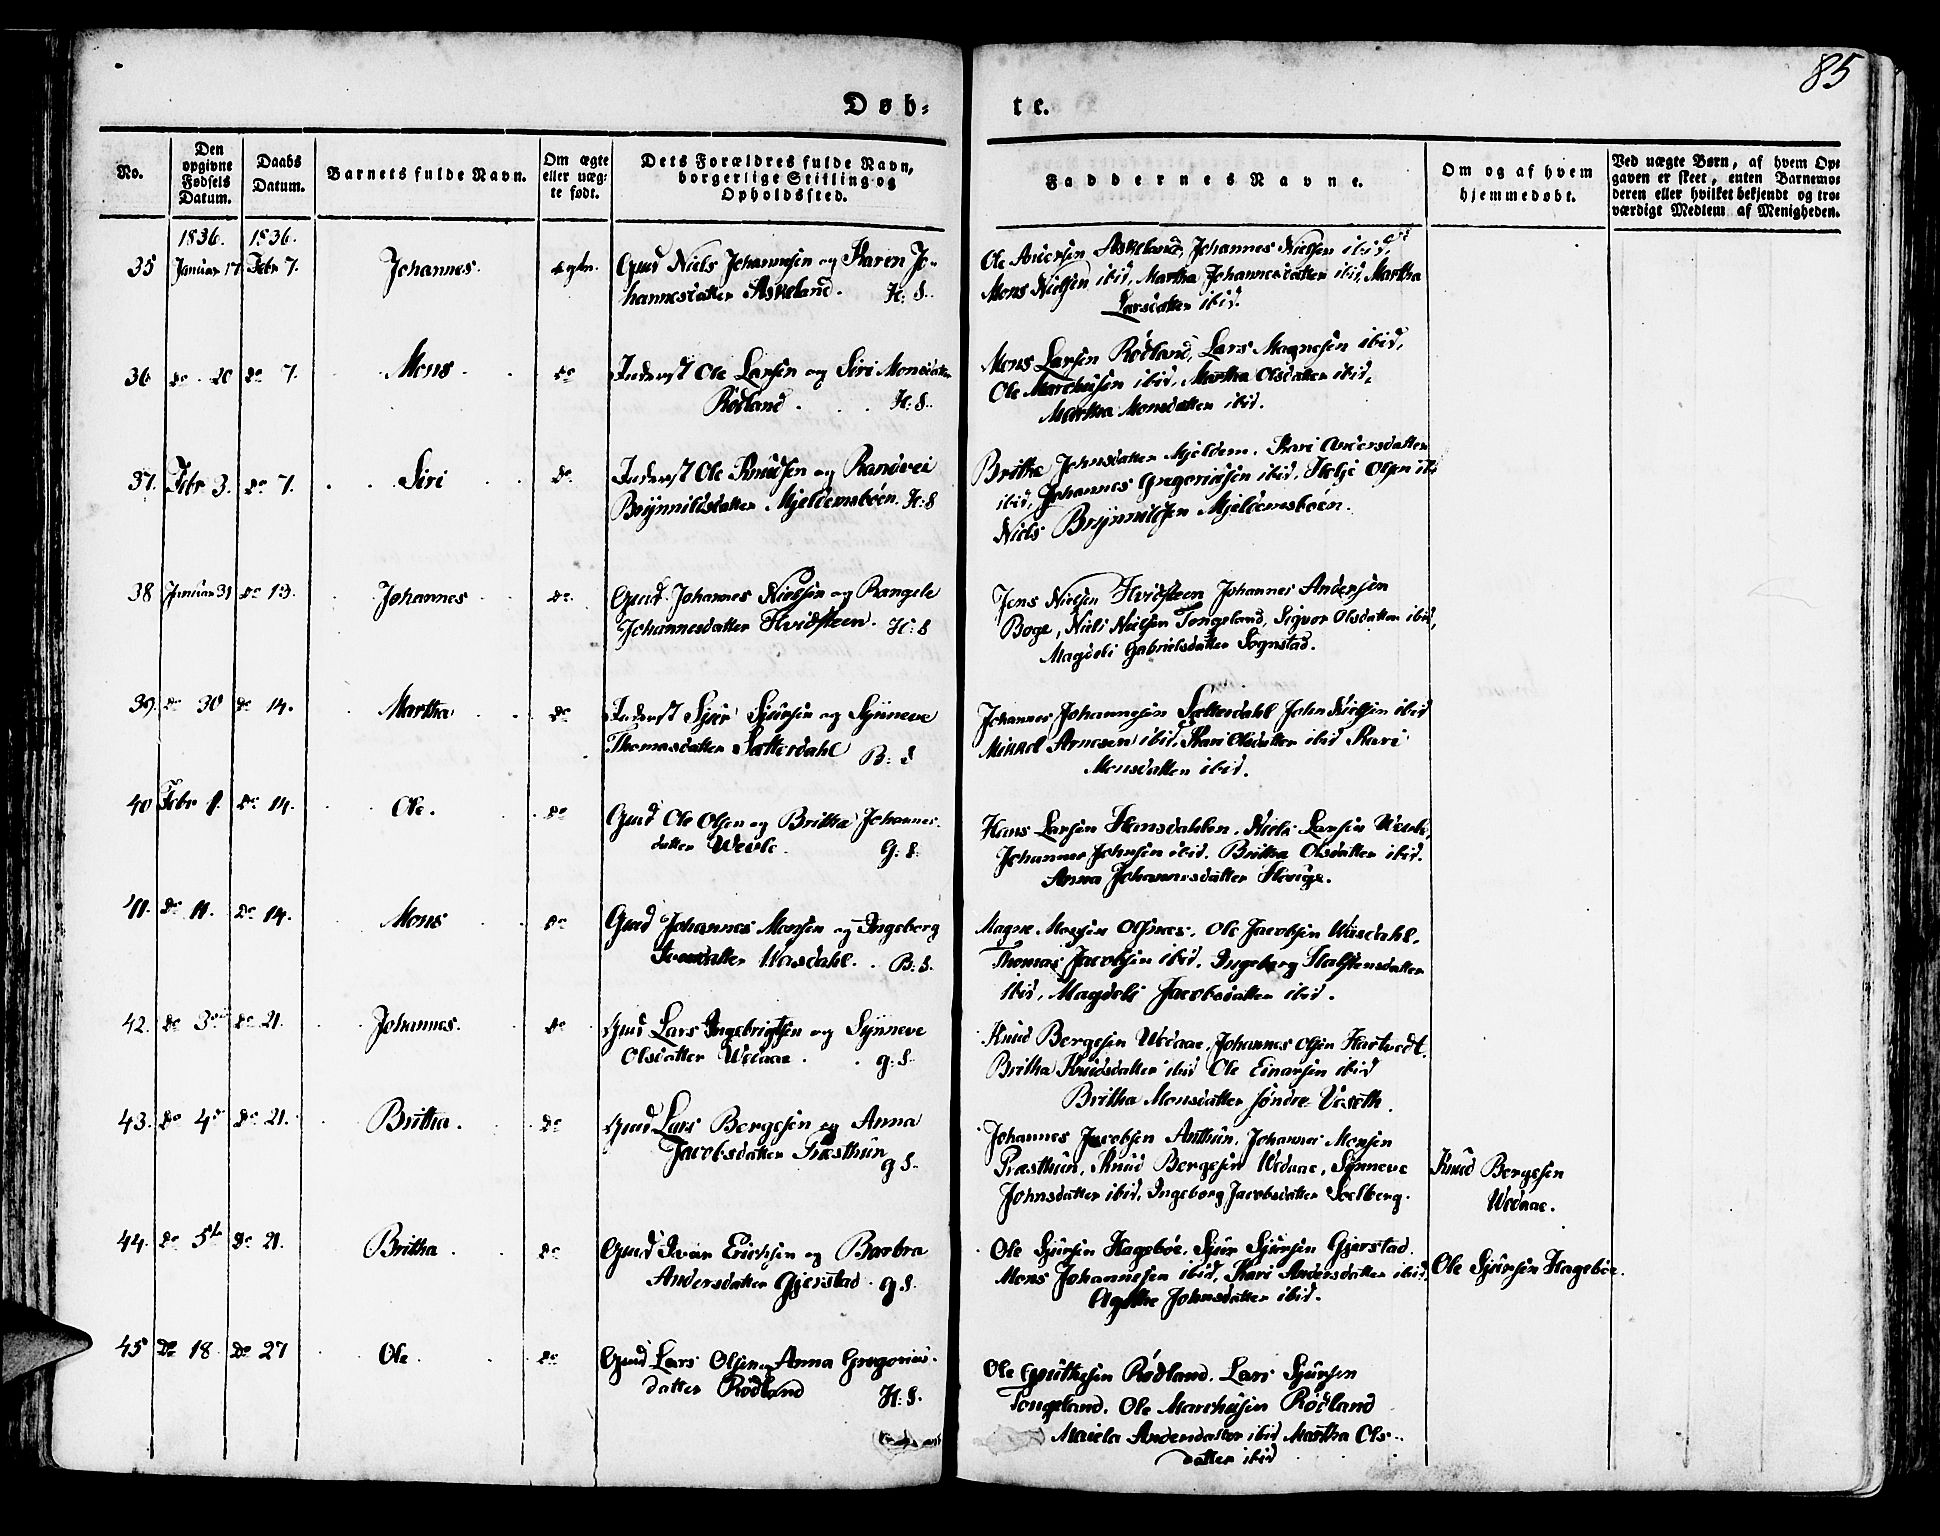 85
Døb-
te.
No.
Den opgivne Fødsels Datum.
Daabs Datum.
Barnets fulde Navn.
Om ægte eller uægte født.
Dets Forældres fulde Navn, borgerlige Stilling og Opholdssted.
Faddernes Navne.
Om og af hvem hjemmedøbt.
Ved uægte Børn, af hvem Opgaven er skeet, enten Barnemoderen eller hvilket bekjendt og troværdigt Medlem af Menigheden.
1836. 1836.
35 Januar 17 Febr 7. Johannes. ægten. Gmd Niels Johannesen og Karen Jo-
hannesdatter Askeland. H: S.
Ole Andersen Askeland, Johannes Nielsen ibid,
Mons Nielsen ibid, Martha Johannesdatter ibid, Martha
Larsdatter ibid.
36 do 20 do 7. Mons do Inderst Ole Larsen og Siri Monsdatter
Rødland. H: S.
Mons Larsen Rødland, Lars Magnesen ibid,
Ole Marchusen ibid, Martha Olsdatter ibid,
Martha Monsdatter ibid.
37. Febr 3. do 7. Siri do Inderst Ole Knudsen og Randvei
Brÿnnildsdatter Mjeldemsbøen. H: S
Britha Johnsdatter Mjeldem. Kari Andersdatter
ibid, Johannes Gregoriusen ibid, Helje Olsen ibi
Niels Brÿnnildsen Mjeldemsbøen.
38 Januar 31 do 13. Johannes do. Gmd Johannes Nielsen og Rangele
Johannesdatter Hvidsteen. H: S
Jens Nielsen Hvidsteen Johannes Andersen
Boge, Niels Nielsen Tongeland, Sigvor Olsdatter ibid,
Magdeli Gabrielsdatter Sognstad.
39. do 30 do 14. Martha do Inderst Sjur Sjursen og Sÿnneve
Thomasdatter Sætterdahl B: S
Johannes Johannesen Sætterdahl John Nielsen ibid
Mikkel Arnesen ibid. Kari Olsdatter ibid Kari
Monsdatter ibid.
40 Febr 1. do 14. Ole. do Gmd Ole Olsen og Britha Johannes-
datter Wevle. G: S.
Hans Larsen Hansdahlen. Niels Larsen Wevle,
Johannes Johnsen ibid. Britha Olsdatter ibid.
Anna Johannesdatter Hauge.
41. do 11. do 14. Mons do Gmd Johannes Monsen og Ingeborg
Iversdatter Wasdahl. B: S.
Magne Olsnes. Ole Jacobsen Wasdahl.
Thomas Jacobsen ibid. Ingeborg Halstensdatter
ibid, Magdeli Jacobsdatter ibid.
42. do 3 do 21. Johannes. do Gmd Lars Ingebrigtsen og Sÿnneve
Olsdatter Wedaae. g: S.
Knud Bergesen Wedaae, Johannes Olsen Hartvedt.
Britha Knudsdatter ibid Ole Einarsen ibid
Britha Monsdatter søndre Vaseth.
43. do 4 do 21. Britha. do Gmd Lars Bergesen og Anna
Jacobsdatter Præsthun g S.
Johannes Jacobsen Anthun. Johannes Monsen
Præsthun, Knud Bergesen Wedaae, Sÿnneve
Johnsdatter ibid, Ingeborg Jacobsdatter Soelberg.
Knud Bergesen
Wedaae.
44. do 5 do 21. Britha do Gmd Ivar Erichsen og Barbra
Andersdatter Gjerstad. g S.
Ole Sjursen Hagebøe. Sjur Sjursen Gjerstad.
Mons Johannesen ibid, Kari Andersdatter ibid.
Agathe Johnsdatter ibid.
Ole Sjursen Hagebøe.
45 Do 18 Do 27 Ole do Gmd Lars Olsen og Anna Gregorius-
datter Rødland H: S.
Ole Rødland. Lars Sjursen
Tongeland. Ole Marchusen Rødland
Andersdatter ibid Martha Ols-
datter ibid